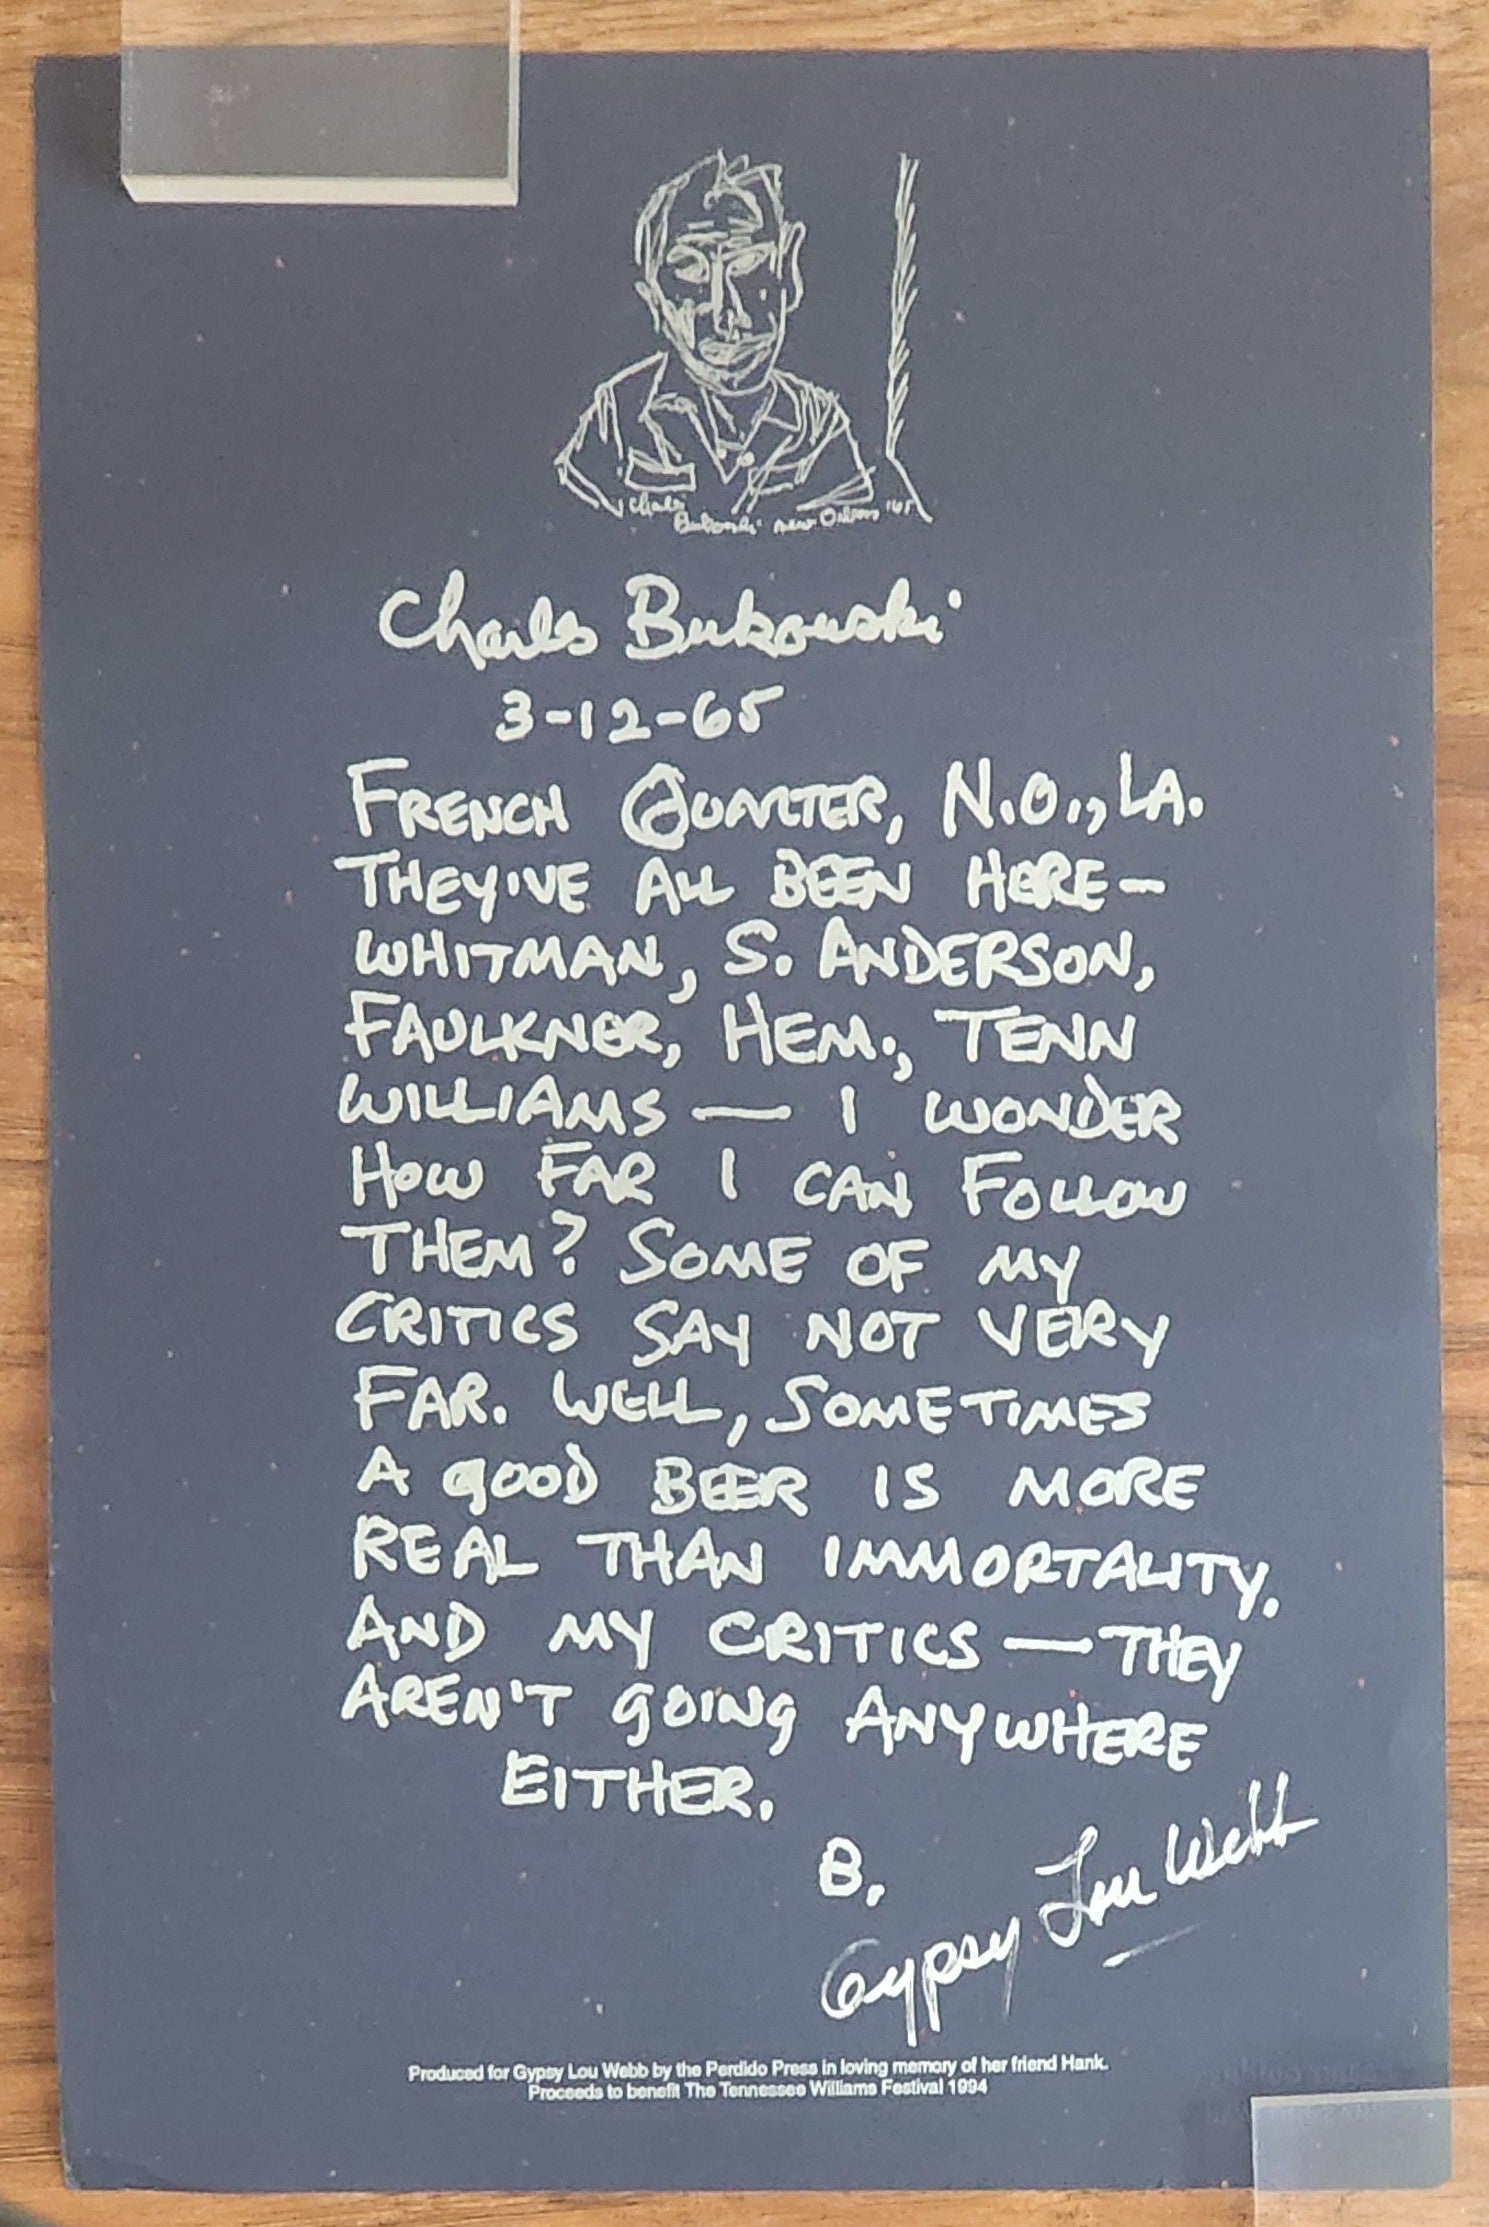 Charles
Bukowski New Orleans '65
Charles Bukowski
3-12-65
FRENCH QUARTER, N.O., LA.
THEY'VE ALL BEEN HERE—
WHITMAN, S. ANDERSON,
FAULKNER, HEM., TENN
WILLIAMS — I WONDER
HOW FAR I CAN FOLLOW
THEM? SOME OF MY
CRITICS SAY NOT VERY
FAR. WELL, SOMETIMES
A gOOD BEER IS MORE
REAL THAN IMMORTALITY.
AND MY CRITICS — THEY
AREN'T gOINg ANYWHERE
EITHER.
B.
Gypsy Lou Webb
Produced for Gypsy Lou Webb by the Perdido Press in loving memory of her friend Hank.
Proceeds to benefit The Tennessee Williams Festival 1994